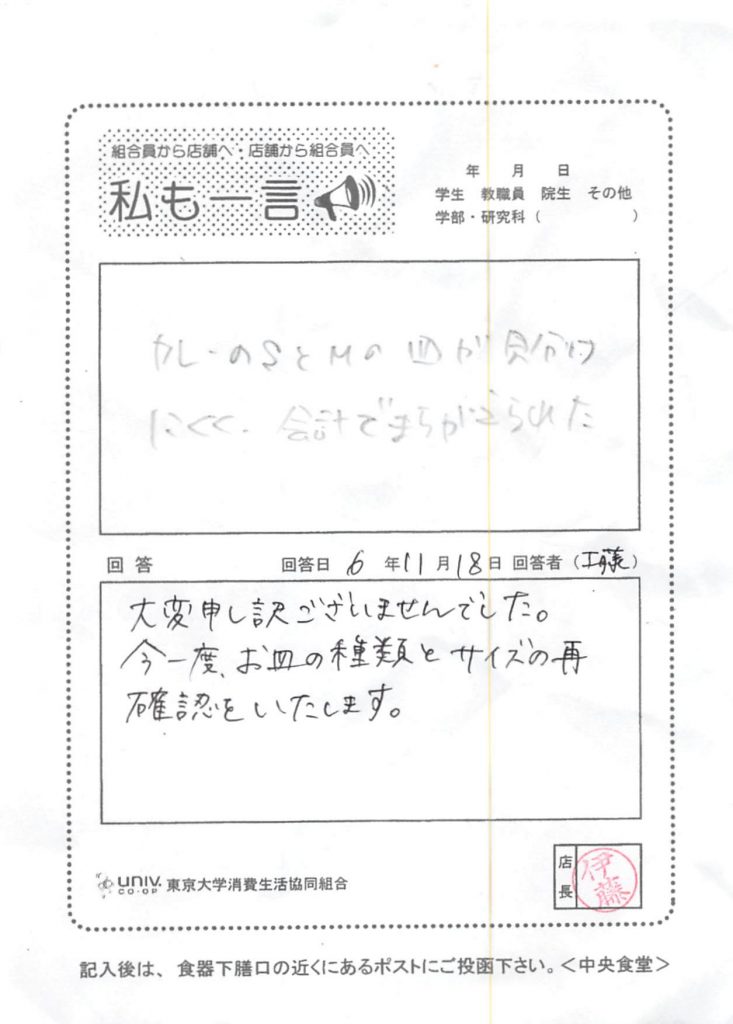 組合員から店舗へ・店舗から組合員へ
私も一言
年 月 日
学生 教職員 院生 その他
学部・研究科( )
カレーのSとMの皿が見分け
にくく、会計でまちがえられた
回答 回答日 6年11月18日 回答者(工藤)
大変申し訳ございませんでした。
今一度、お皿の種類とサイズの再
確認をいたします。
UNIV. CO-OP 東京大学消費生活協同組合
店長 伊藤
記入後は、食器下膳口の近くにあるポストにご投函下さい。<中央食堂>